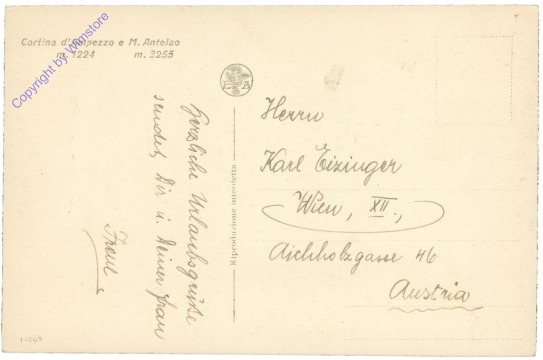 Cortina d'Ampezzo e M. Antelao
m. 1224 m. 3255
Copyright by Wimstore
E A
Herzliche Urlaubsgrüße
sendet Dir u. Deiner Frau
Riproduzione interdetta
Herrn
Karl Eizinger
Wien, XII.,
Aichholzgasse 46
Austria